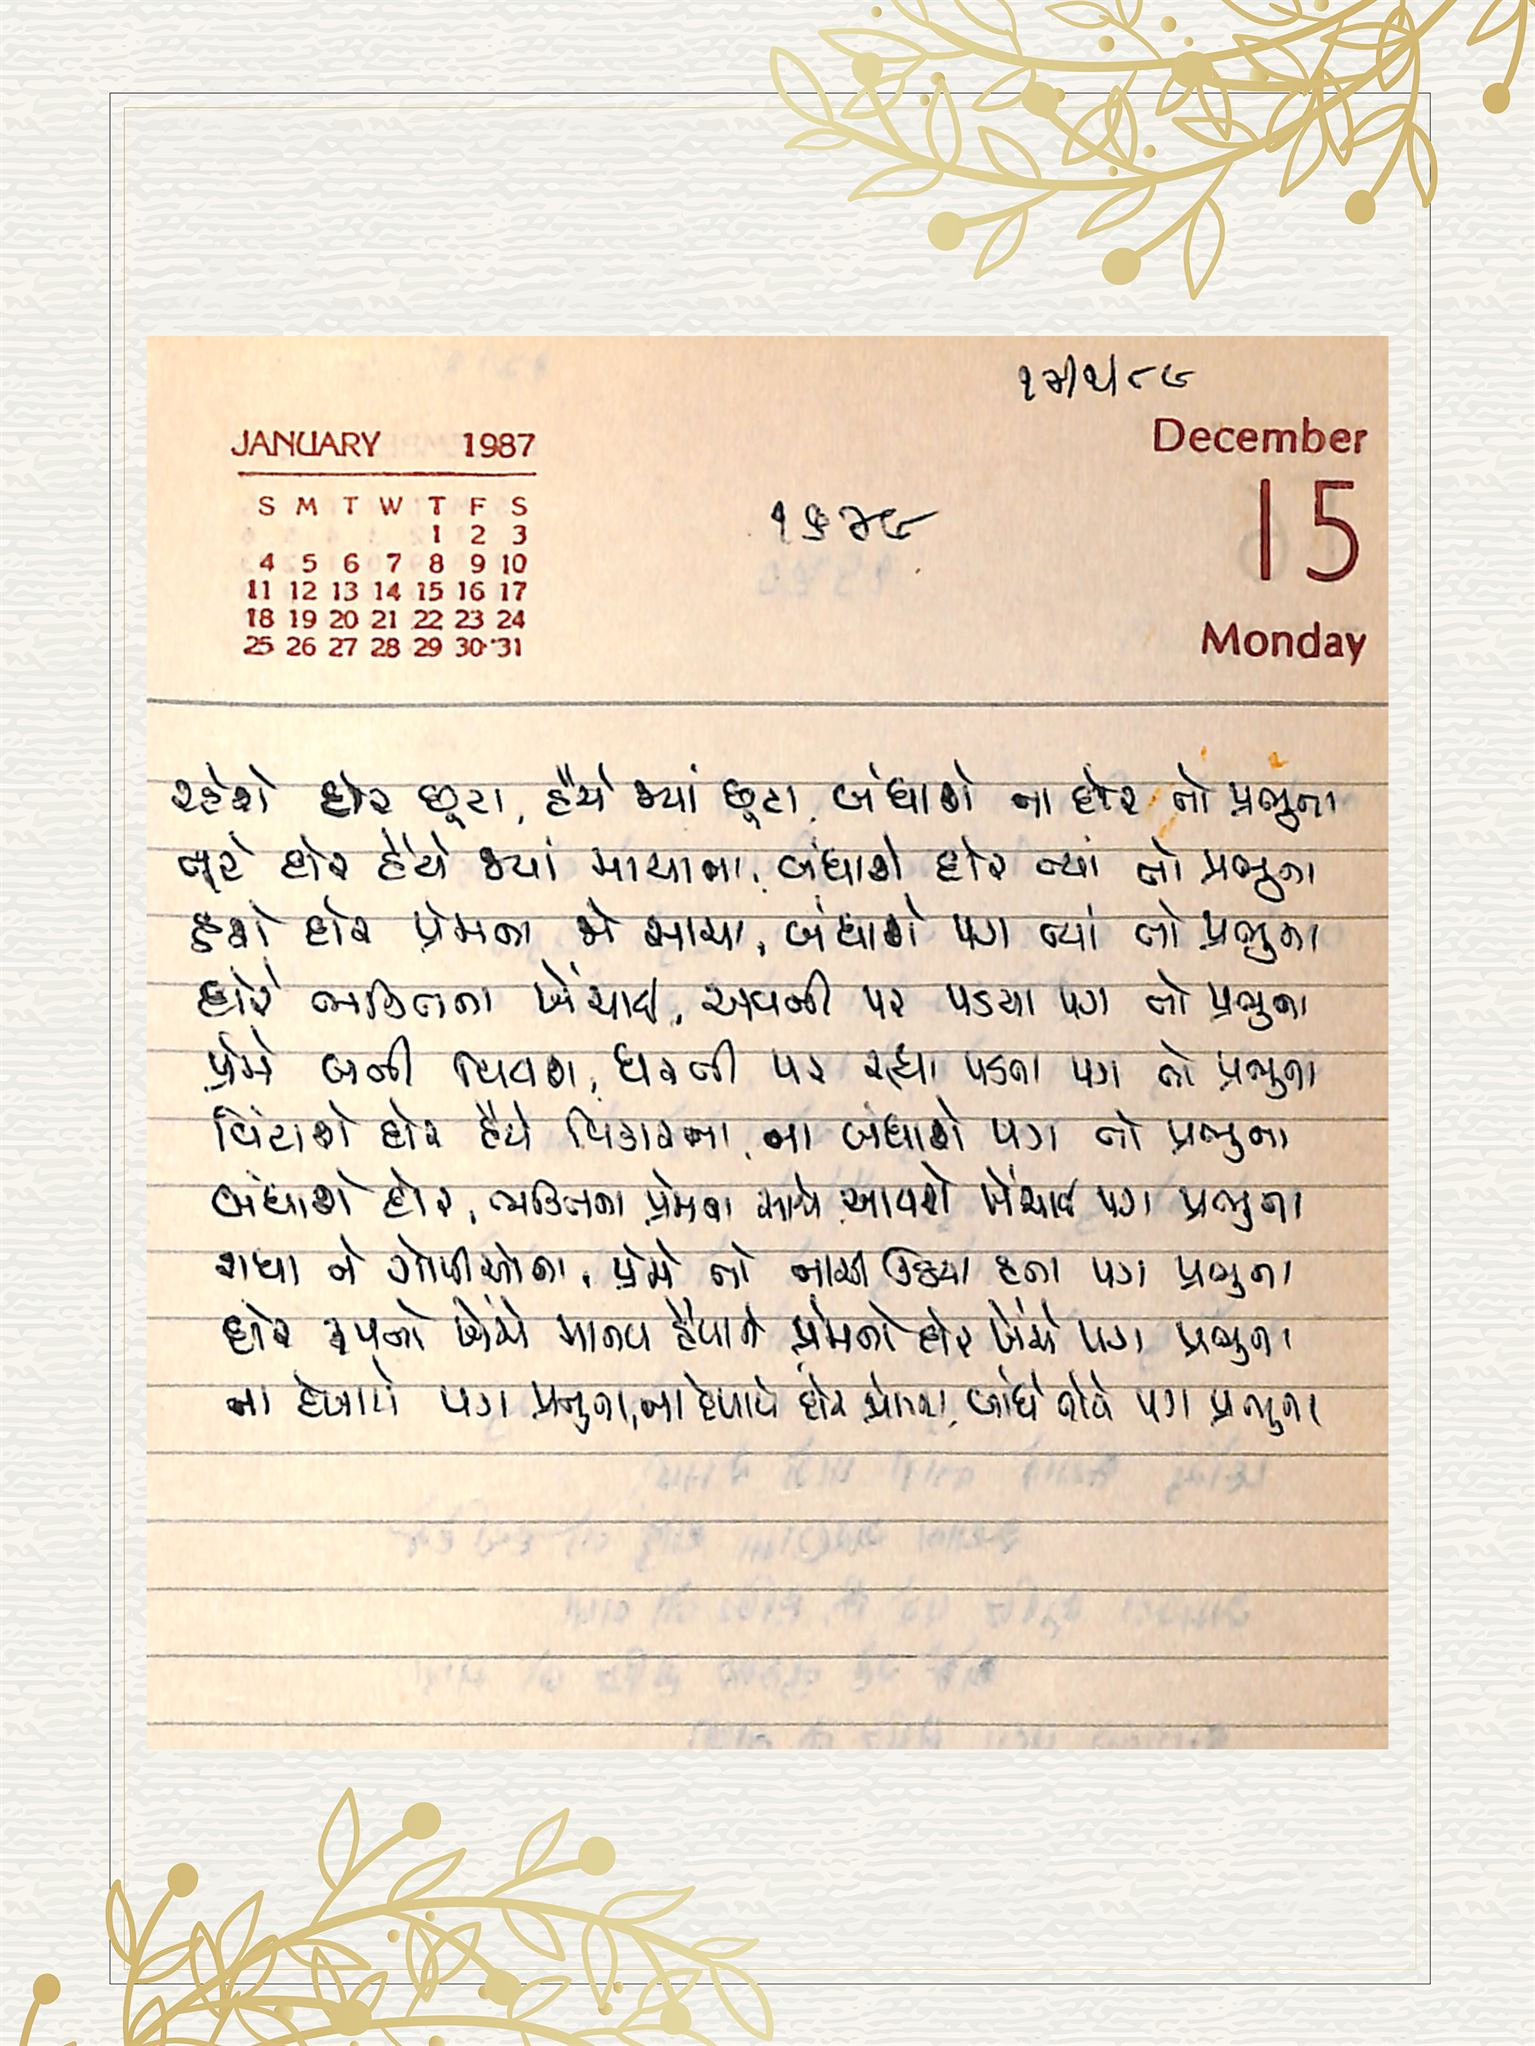 ૧૩/૧/૮૯
JANUARY 1987
December
S M T W T F S
1 2 3
4 5 6 7 8 9 10
11 12 13 14 15 16 17
18 19 20 21 22 23 24
25 26 27 28 29 30 31
૧૬૩૯
15
Monday
રહેશે દોર છૂટા, હૈયે જ્યાં છૂટા, બંધાશે ના દોર તો પ્રભુના
તૂટે દોર હૈયે જ્યાં માયાના, બંધાશે દોર ત્યાં તો પ્રભુના
હશે દોર પ્રેમના જો સાચા, બંધાશે પગ ત્યાં તો પ્રભુના
દોરે ભક્તિના ખેંચાઈ, અવની પર પડયા પગ તો પ્રભુના
પ્રેમે બની વિવશ, ધરની પર રહ્યા પડતા પગ તો પ્રભુના
વિંટાશે દોર હૈયે વિકારના, ના બંધાશે પગ તો પ્રભુના
બંધાશે દોર, ભક્તિના પ્રેમના સાથે, આવશે ખેંચાઈ પગ પ્રભુના
રાધા ને ગોપીઓના, પ્રેમે તો નાચી ઉઠયા હતા પગ પ્રભુના
દોર રૂપનો ખેંચે માનવ હૈયાને, પ્રેમનો દોર ખેંચે પગ પ્રભુના
ના દેખાયે પગ પ્રભુના, ના દેખાયે દોર પ્રેમના, બાંધે તોયે પગ પ્રભુના